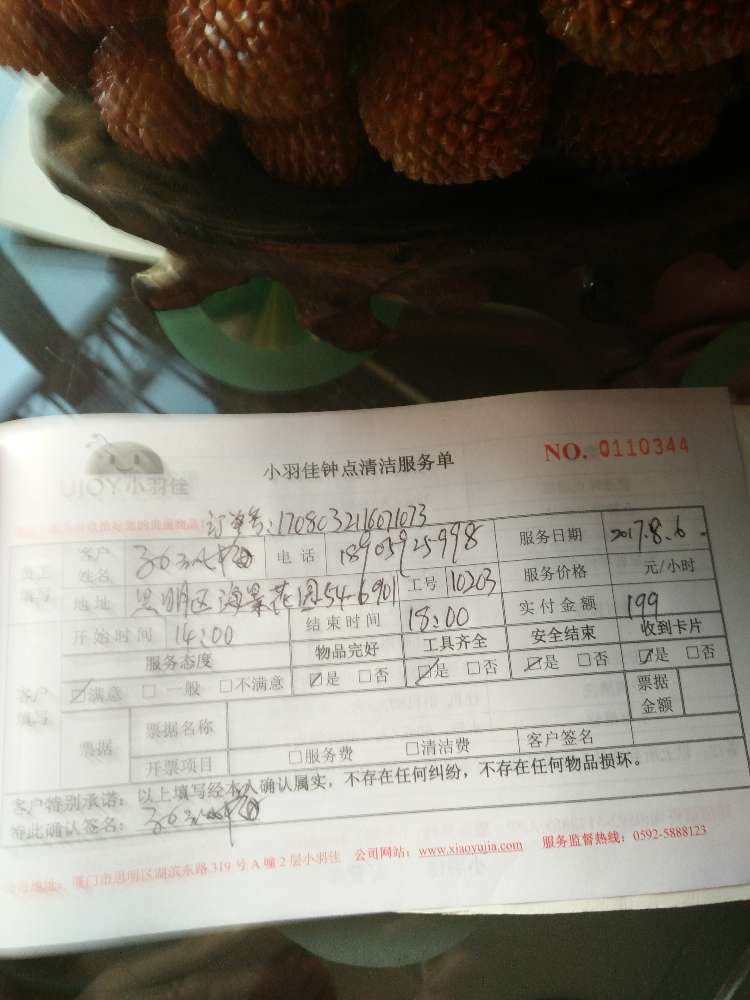 UIOY小羽佳
小羽佳钟点清洁服务单
NO. 0110344
订单号:170803216071073
员工填写 客户姓名 电话 18905925998 服务日期 2017.8.6.
地址 思明区海景花园54-6901 工号 10203 服务价格 元/小时
开始时间 14:00 结束时间 18:00 实付金额 199
服务态度 物品完好 工具齐全 安全结束 收到卡片
客户填写 ☑满意 □一般 □不满意 ☑是 □否 ☑是 □否 ☑是 □否 ☑是 □否
票据 票据名称 票据金额
开票项目 □服务费 □清洁费 客户签名
客户特别承诺：以上填写经本人确认属实，不存在任何纠纷，不存在任何物品损坏。
特此确认签名：
公司地址：厦门市思明区湖滨东路319号A幢2层小羽佳 公司网站：www.xiaoyujia.com 服务监督热线：0592-5888123